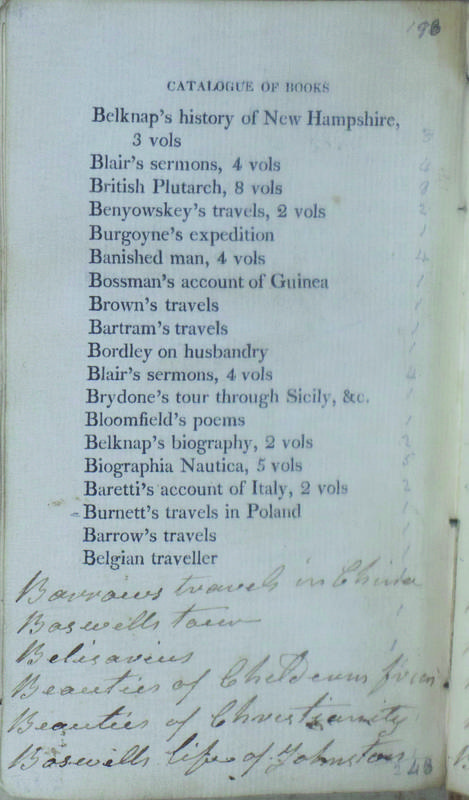 198
CATALOGUE OF BOOKS
Belknap's history of New Hampshire,
3 vols 3
Blair's sermons, 4 vols 4
British Plutarch, 8 vols 8
Benyowskey's travels, 2 vols 2
Burgoyne's expedition 1
Banished man, 4 vols 4
Bossman's account of Guinea 1
Brown's travels 1
Bartram's travels 1
Bordley on husbandry 1
Blair's sermons, 4 vols 4
Brydone's tour through Sicily, &c. 1
Bloomfield's poems 1
Belknap's biography, 2 vols 2
Biographia Nautica, 5 vols 5
Baretti's account of Italy, 2 vols 2
Burnett's travels in Poland 1
Barrow's travels 1
Belgian traveller 1
Barrows travels in China
Boswells tour 1
Belisarius 1
Beauties of
Beauties of Christianity
Boswells life of Johnston